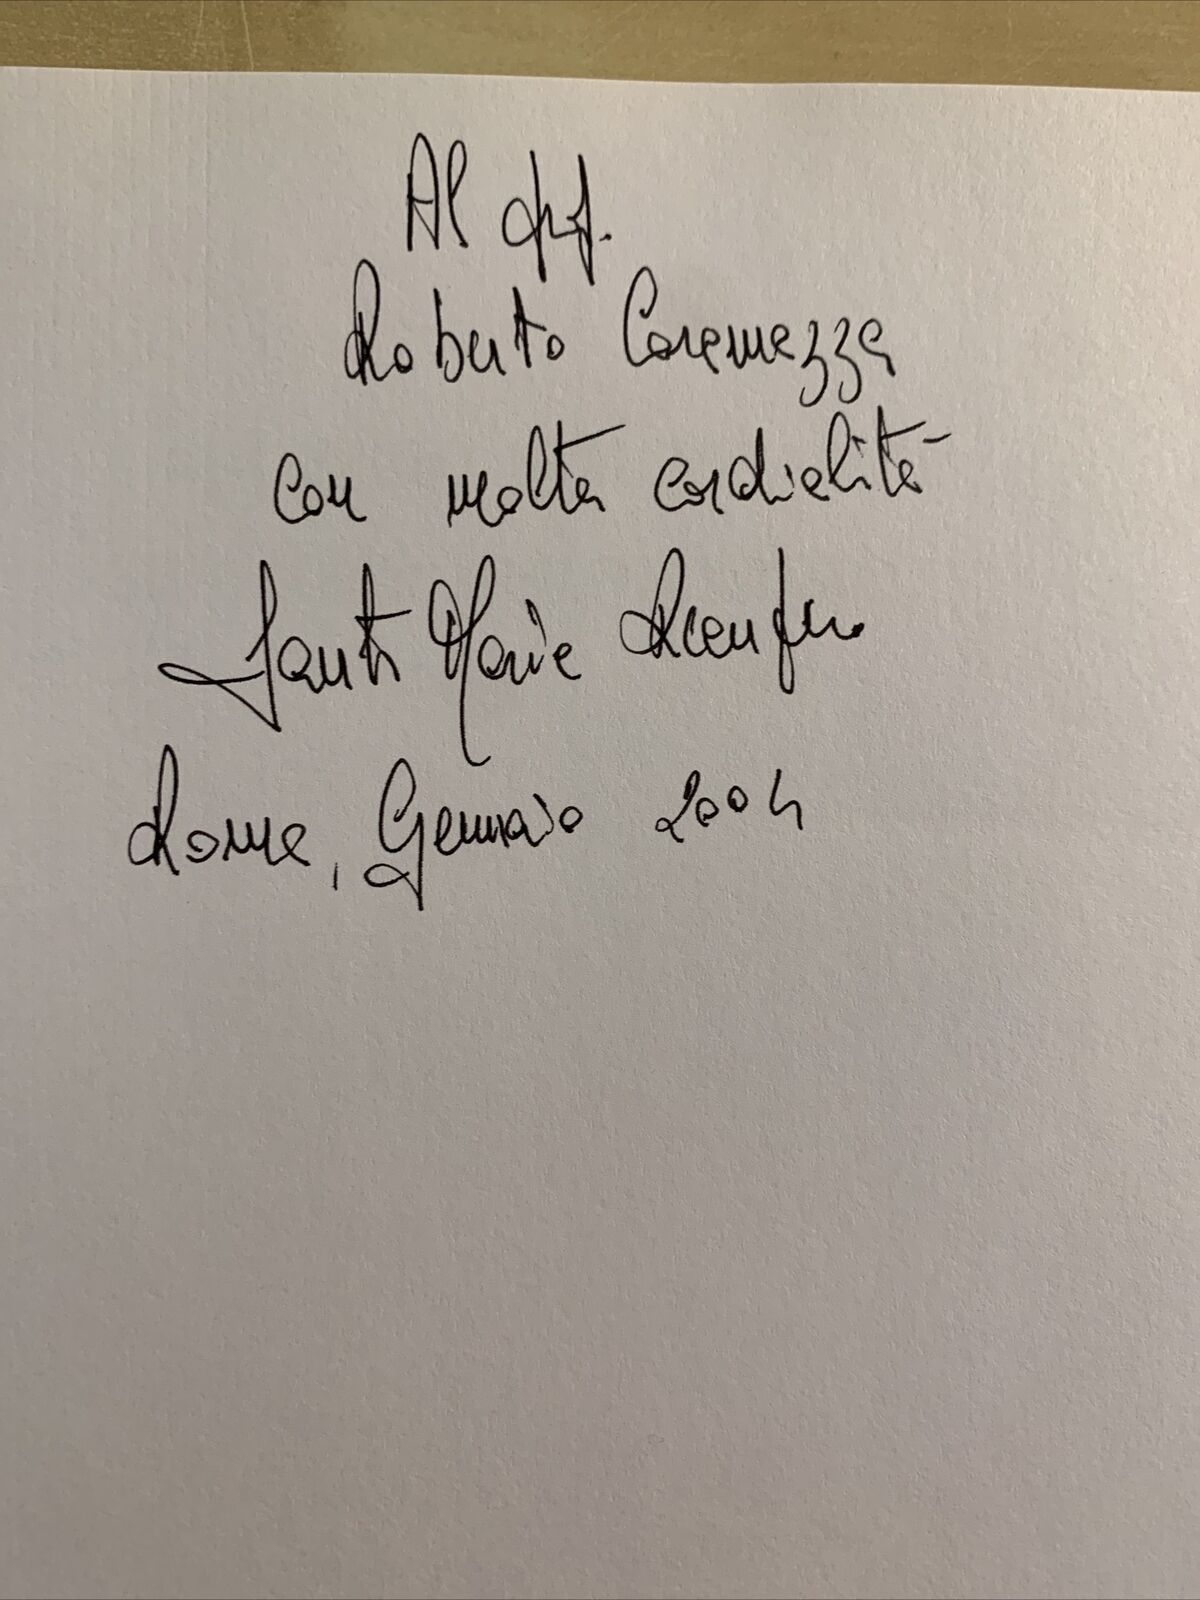 Al prof.
Roberto Caremezza
con molta cordialità
Santi Maria
Roma, Gennaio 2004